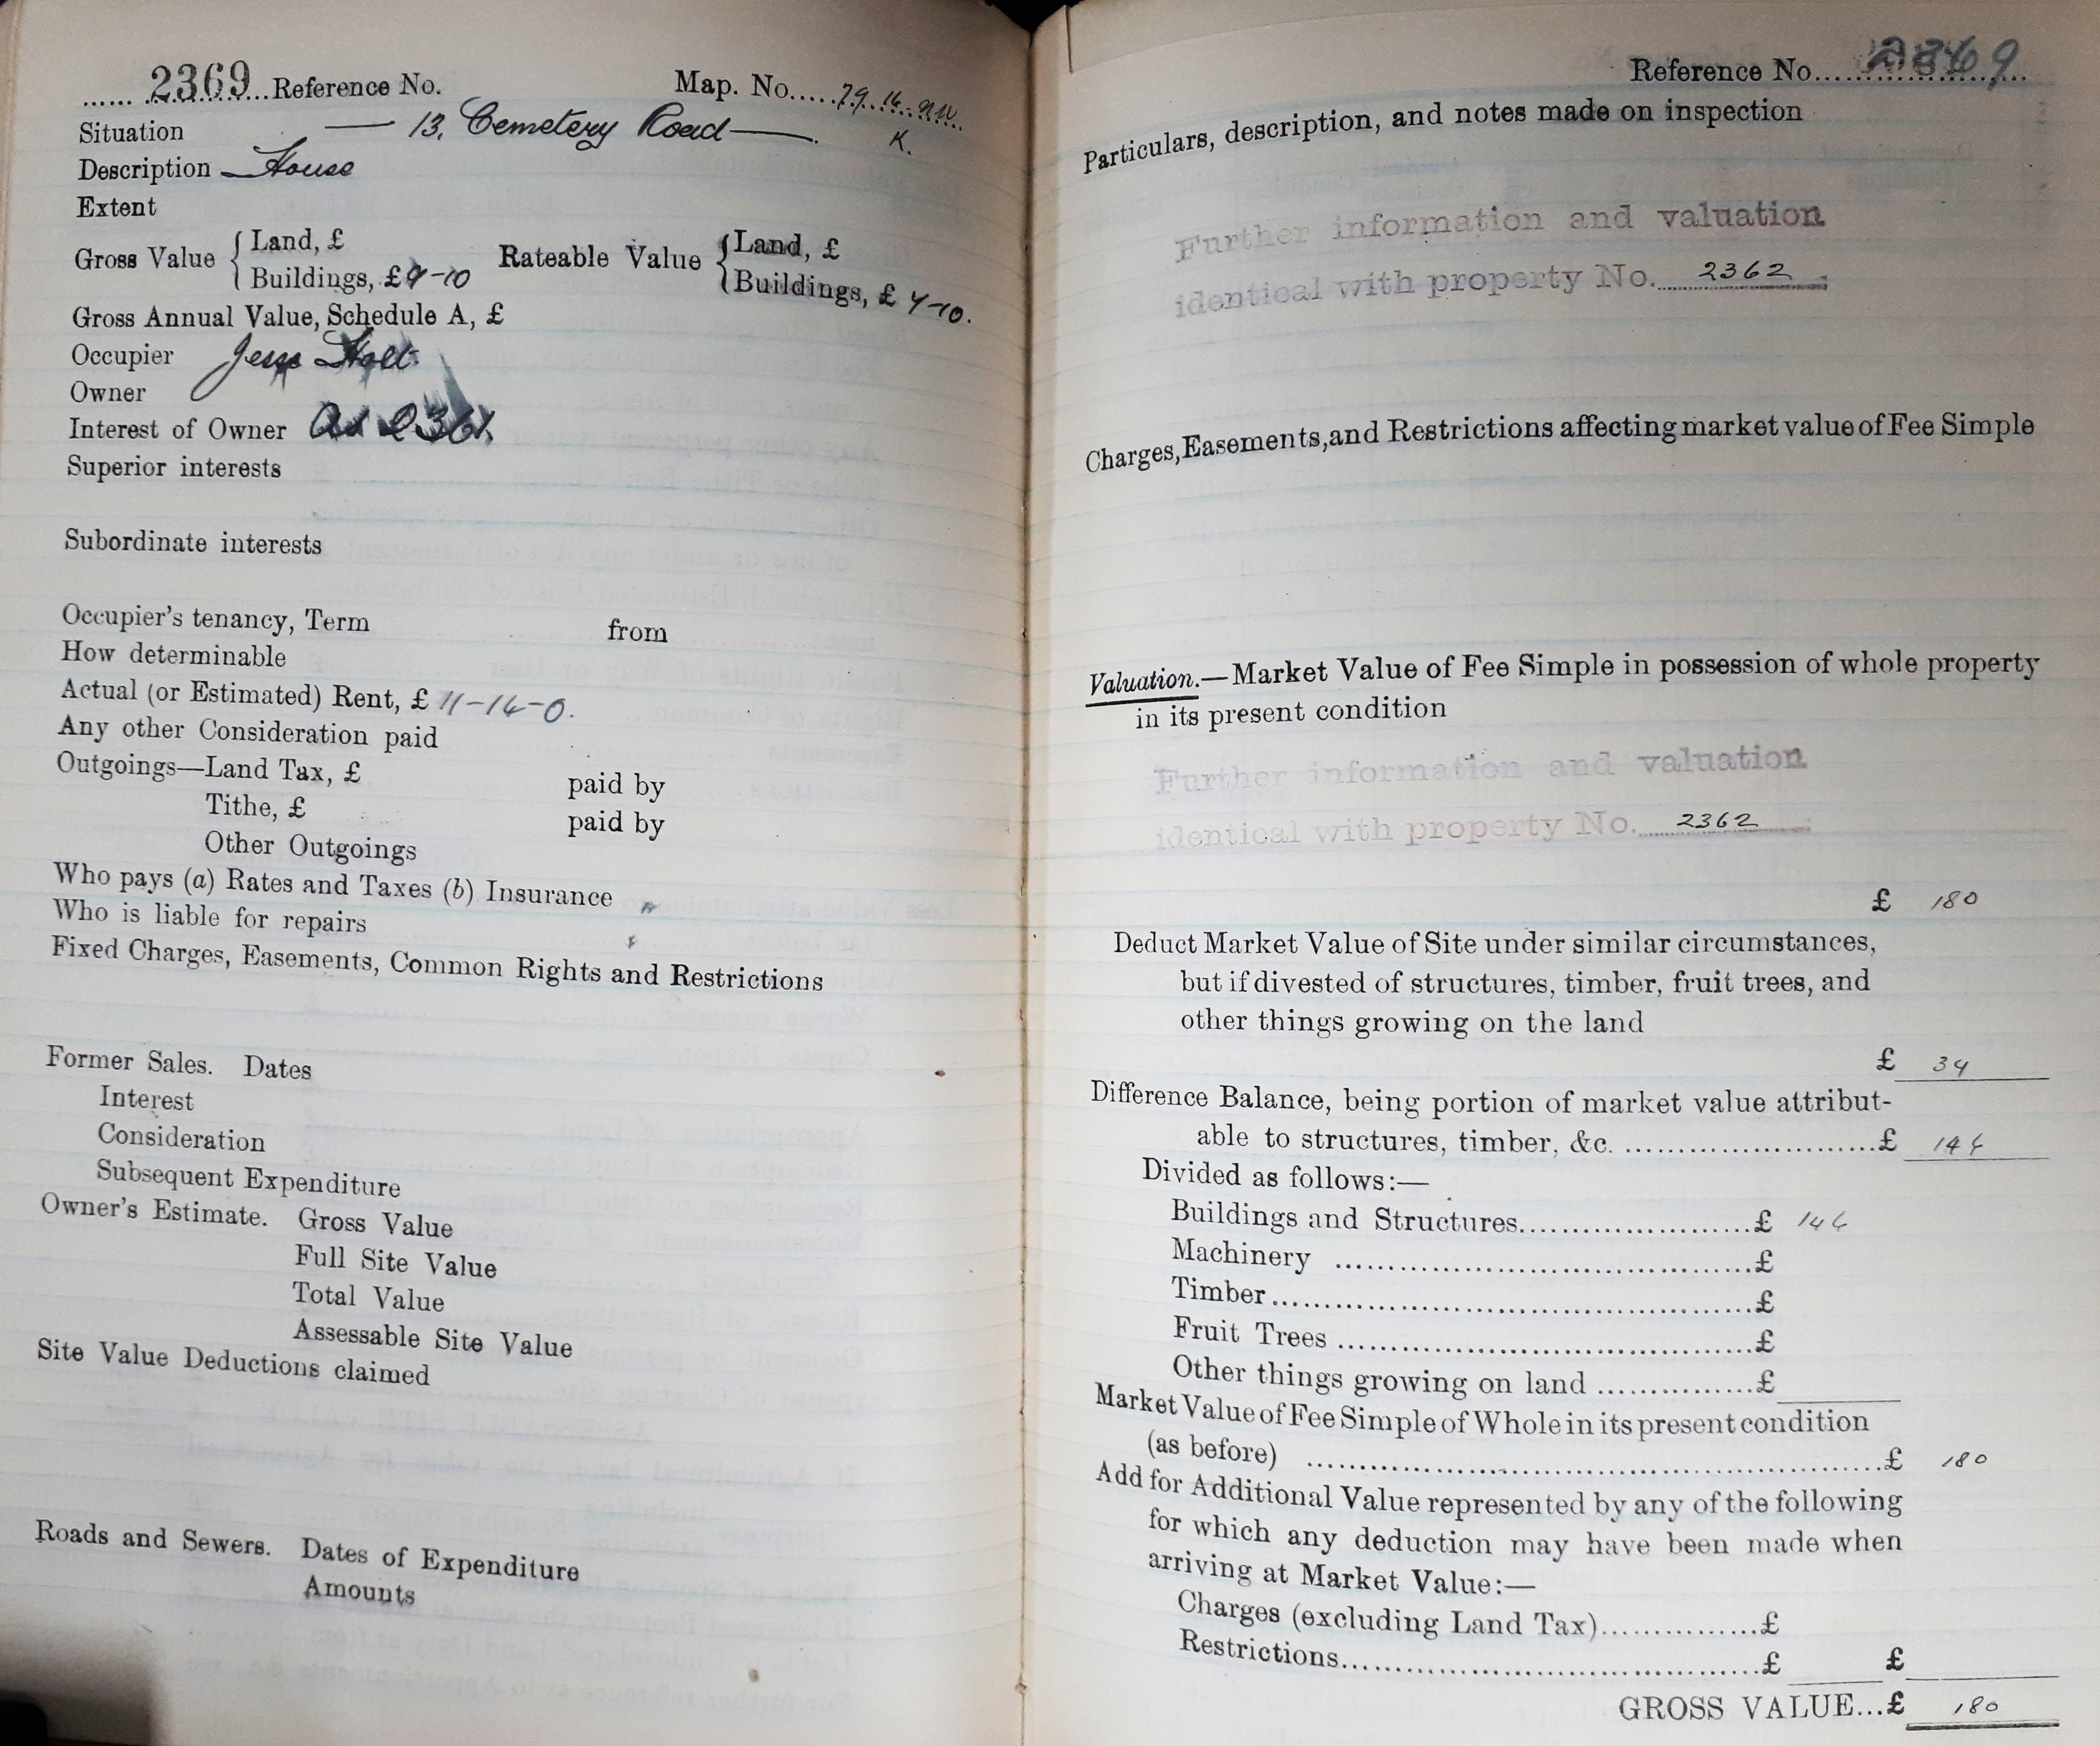 ...... 2369 Reference No. Map. No..... 79. 14. NW.
Situation — 13, Cemetery Road —. K.
Description — House
Extent
Gross Value { Land, £ Rateable Value { Land, £
Buildings, £ 9-10 Buildings, £ 7-10.
Gross Annual Value, Schedule A, £
Occupier Jesse Holt
Owner
Interest of Owner as 2361.
Superior interests
Subordinate interests
Occupier's tenancy, Term from
How determinable
Actual (or Estimated) Rent, £ 11-14-0.
Any other Consideration paid
Outgoings—Land Tax, £ paid by
Tithe, £ paid by
Other Outgoings
Who pays (a) Rates and Taxes (b) Insurance
Who is liable for repairs
Fixed Charges, Easements, Common Rights and Restrictions
Former Sales. Dates
Interest
Consideration
Subsequent Expenditure
Owner's Estimate. Gross Value
Full Site Value
Total Value
Assessable Site Value
Site Value Deductions claimed
Roads and Sewers. Dates of Expenditure
Amounts
Reference No...... 2369
Particulars, description, and notes made on inspection
Further information and valuation
identical with property No. 2362
Charges, Easements, and Restrictions affecting market value of Fee Simple
Valuation.—Market Value of Fee Simple in possession of whole property
in its present condition
Further information and valuation
identical with property No. 2362
£ 180
Deduct Market Value of Site under similar circumstances,
but if divested of structures, timber, fruit trees, and
other things growing on the land
£ 34
Difference Balance, being portion of market value attribut-
able to structures, timber, &c. ........................£ 146
Divided as follows:—
Buildings and Structures........................£ 146
Machinery ........................£
Timber........................£
Fruit Trees ........................£
Other things growing on land ...............£
Market Value of Fee Simple of Whole in its present condition
(as before) ........................£ 180
Add for Additional Value represented by any of the following
for which any deduction may have been made when
arriving at Market Value:—
Charges (excluding Land Tax)...............£
Restrictions........................£ £
GROSS VALUE...£ 180